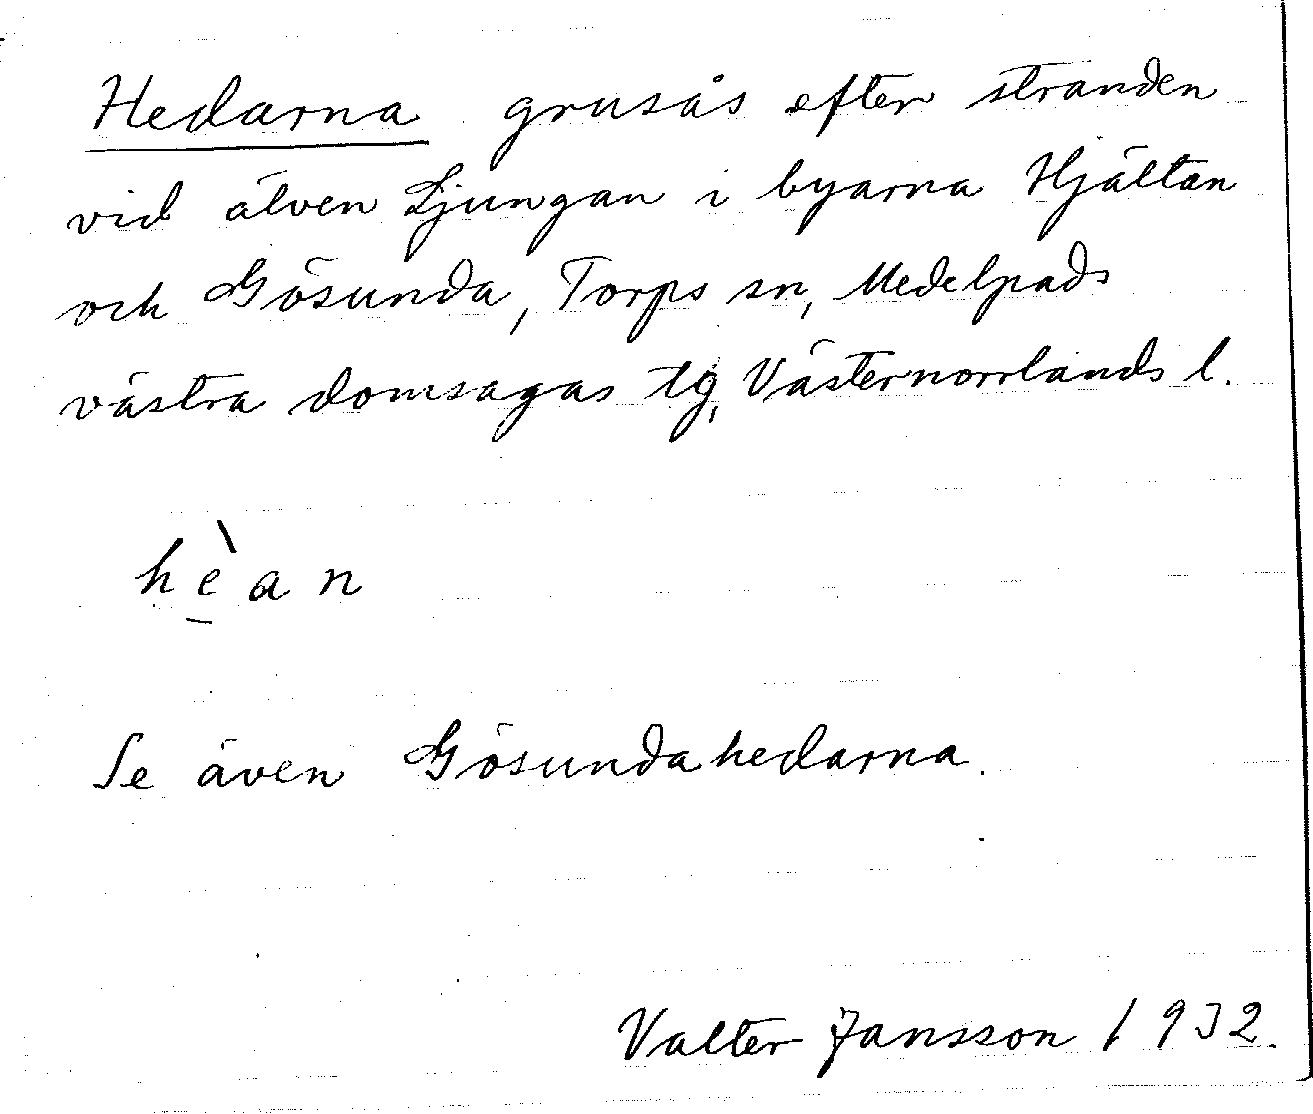 Hedarna grusås efter stranden
vid älven Ljungan i byarna Hjältan
och Gösunda, Torps sn, Medelpads
västra domsagas tg, Västernorrlands l.
hèan
Se även Gösundahedarna.
Valter Jansson 1932.